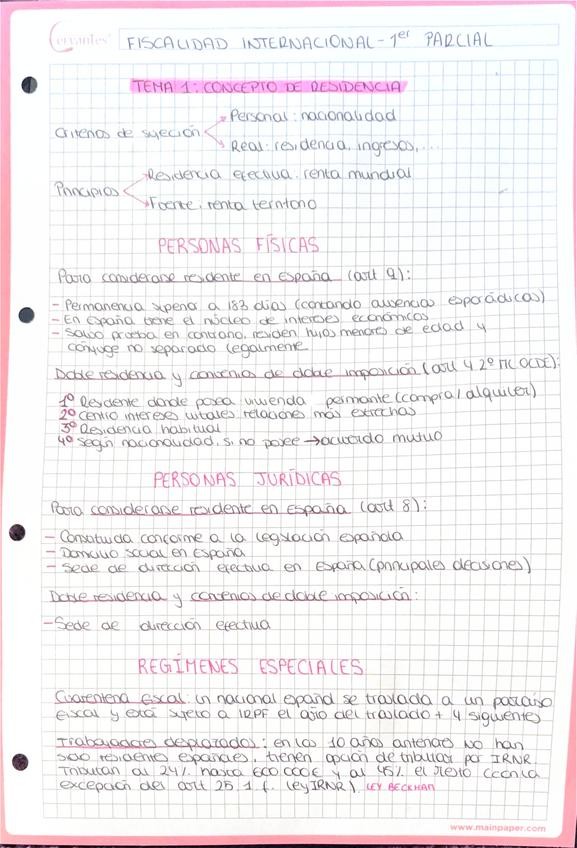 Cervantes
FISCALIDAD INTERNACIONAL - 1er PARCIAL
TEMA 1: CONCEPTO DE RESIDENCIA
Personal: nacionalidad
Criterios de sujeción
Real: residencia, ingresos,...
Residencia efectiva: renta mundial
Principios
Fuente: renta territorio
PERSONAS FÍSICAS
Para considerarse residente en España (art 9):
- Permanencia supera a 183 días (contando ausencias esporádicas)
- En España tiene el núcleo de intereses económicos
- Salvo prueba en contrario, residen hijos menores de edad y
cónyuge no separado legalmente
Doble residencia y convenios de doble imposición (art 4.2º MC OCDE):
1º Residente donde posea vivienda permante (compra/alquiler)
2º Centro intereses vitales relaciones más estrechas
3º Residencia habitual
4º Según nacionalidad, si no posee → acuerdo mutuo
PERSONAS JURÍDICAS
Para considerarse residente en España (art 8):
- Constituida conforme a la legislación española
- Domicilio social en España
- Sede de dirección efectiva en España (principales decisiones)
Doble residencia y convenios de doble imposición:
- Sede de dirección efectiva
REGÍMENES ESPECIALES
Cuarentena fiscal: un nacional español se traslada a un paraíso
fiscal y está sujeto a IRPF el año del traslado + 4 siguientes
Trabajadores desplazados: en los 10 años anteriores NO han
sido residentes españoles, tienen opción de tributar por IRNR.
Tributan al 24% hasta 600 000€ y al 45% el resto (con la
excepción del art 25.1.f. ley IRNR). LEY BECKHAM
www.mainpaper.com